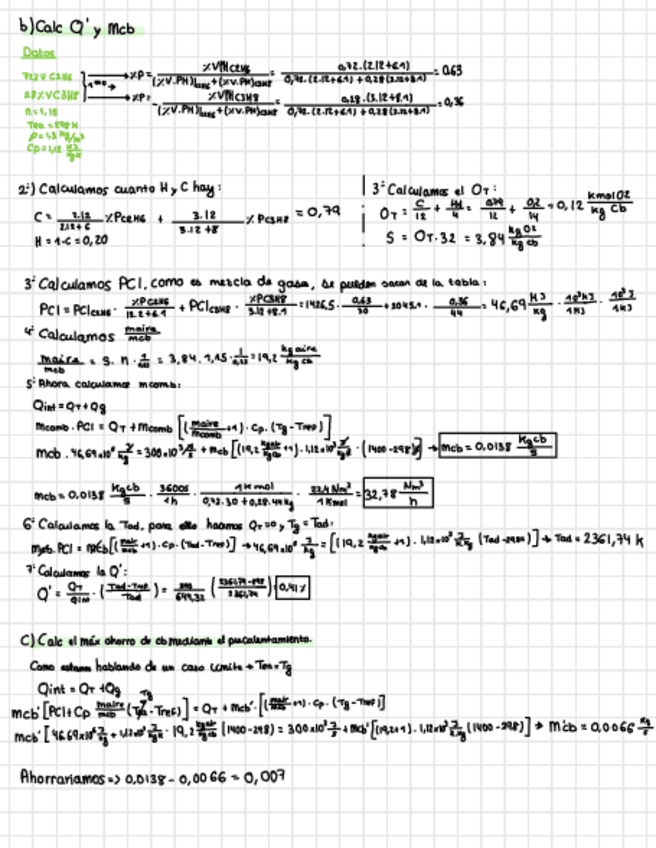 b) Calc Q' y Mcb
Datos
72% V C2H6
28% V C3H8
n = 1,15
Tea = 298 K
Cp = 1,12
%P = %VPMC2H6 / (%V.PM)C2H6 + (%V.PM)C3H8 = 0,72.(2.12+6.1) / 0,72.(2.12+6.1) + 0,28(3.12+8.1) = 0,63
%P = %VPMC3H8 / (%V.PM)C2H6 + (%V.PM)C3H8 = 0,28.(3.12+8.1) / 0,72.(2.12+6.1) + 0,28(3.12+8.1) = 0,36
2º) Calculamos cuanto H y C hay:
C = 2.12 / 2.12+6 % PC2H6 + 3.12 / 3.12+8 % PC3H8 = 0,79
H = 1-C = 0,20
3º Calculamos el OT:
OT = C/12 + H/4 = 0,79/12 + 0,2/14 = 0,12 kmolO2 / kg Cb
S = OT.32 = 3,84 kgO2 / kg cb
3º Calculamos PCI, como es mezcla de gases, se pueden sacar de la tabla:
PCI = PCIC2H6 . %PC2H6 / 12.2+6.1 + PCIC3H8 . %PC3H8 / 3.12+8.1 = 1426,5 . 0,63/30 + 2045,4 . 0,36/44 = 46,69
4º Calculamos maire / mcb
maire / mcb = S . n . 1/0,23 = 3,84 . 1,15 . 1/0,23 = 19,2 kg aire / kg cb
5º Ahora calculamos mcomb:
Qint = QT + Qg
mcomb . PCI = QT + mcomb [(maire/mcomb + 1) . Cp . (Tg - Tref)]
mcb . 46,69x10⁶ J/kg = 300x10³ + mcb [(19,2 kgair/kgcb + 1) . 1,12x10³ . (1400-298)] → mcb = 0,0138 kgcb / s
mcb = 0,0138 kgcb / s . 3600s / 1h . 1Kmol / 0,72.30 + 0,28.44kg . 22,4 Nm³ / 1Kmol = 32,78 Nm³ / h
6º Calculamos la Tad, para ello hacemos QT=0 y Tg = Tad:
mcb . PCI = mcb [(mair/mcb + 1) . Cp . (Tad - Tref)] → 46,69x10⁶ J/kg = [(19,2 + 1) . 1,12x10³ (Tad - 298)] → Tad = 2361,74 K
7º Calculamos la Q':
Q' = QT / Qint . (Tad - Tref / Tad) = 300 / 644,32 = 0,41%
C) Calc el máx ahorro de cb mediante el precalentamiento.
Como estamos hablando de un caso límite → Tea = Tg
Qint = QT + Qg
mcb' [PCI + Cp maire/mcb (Tg - Tref)] = QT + mcb' . [(mair/mcb + 1) . Cp . (Tg - Tref)]
mcb' [46,69x10⁶ J/kg + 1,12x10³ . 19,2 (1400-298)] = 300x10³ J/s + mcb' [(19,2+1) . 1,12x10³ (1400-298)] → mcb = 0,0066 kg / s
Ahorraríamos => 0,0138 - 0,0066 = 0,007